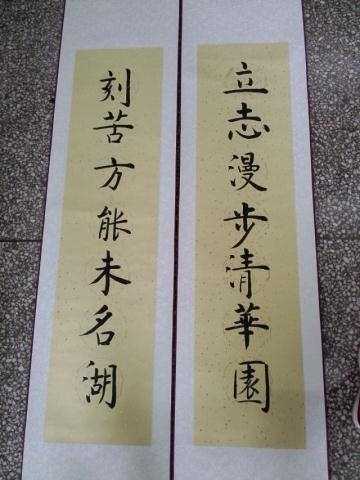 立志漫步清華園
刻苦方能未名湖